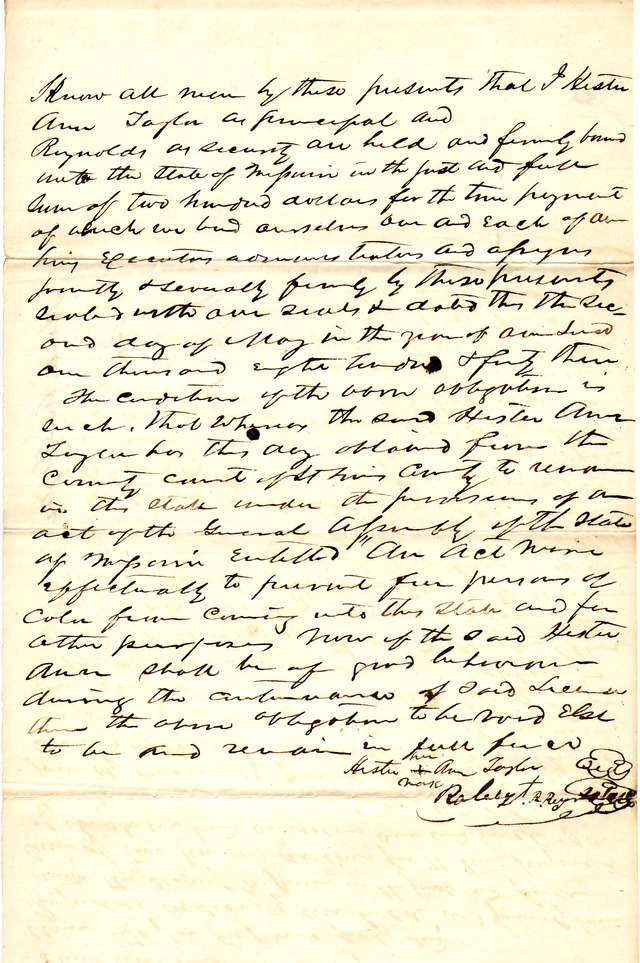 Know all men by these presents that I Hester
Ann Taylor as principal and
Reynolds as security are held and firmly bound
unto the State of Missouri in the just and full
sum of two hundred dollars for the true payment
of which we bind ourselves our and Each of our
hirs Executors administrators and assigns
jointly & severally firmly by these presents
sealed with our seals & dated this the sec-
ond day of May in the year of our Lord
one thousand eight hundred & forty three
The condition of the above obligation is
such, that whereas the said Hester Ann
Taylor has this day obtained from the
County court of St Louis County to remain
in this State under the provisions of an
act of the General Assembly of the State
of Missouri Entitled "An Act more
effectually to prevent free persons of
Color from coming into this State and for
other purposes Now if the said Hester
Ann shall be of good behaviour
during the continuance of said License
then the above obligation to be void Else
to be and remain in full force
Hester her Ann Taylor
mark